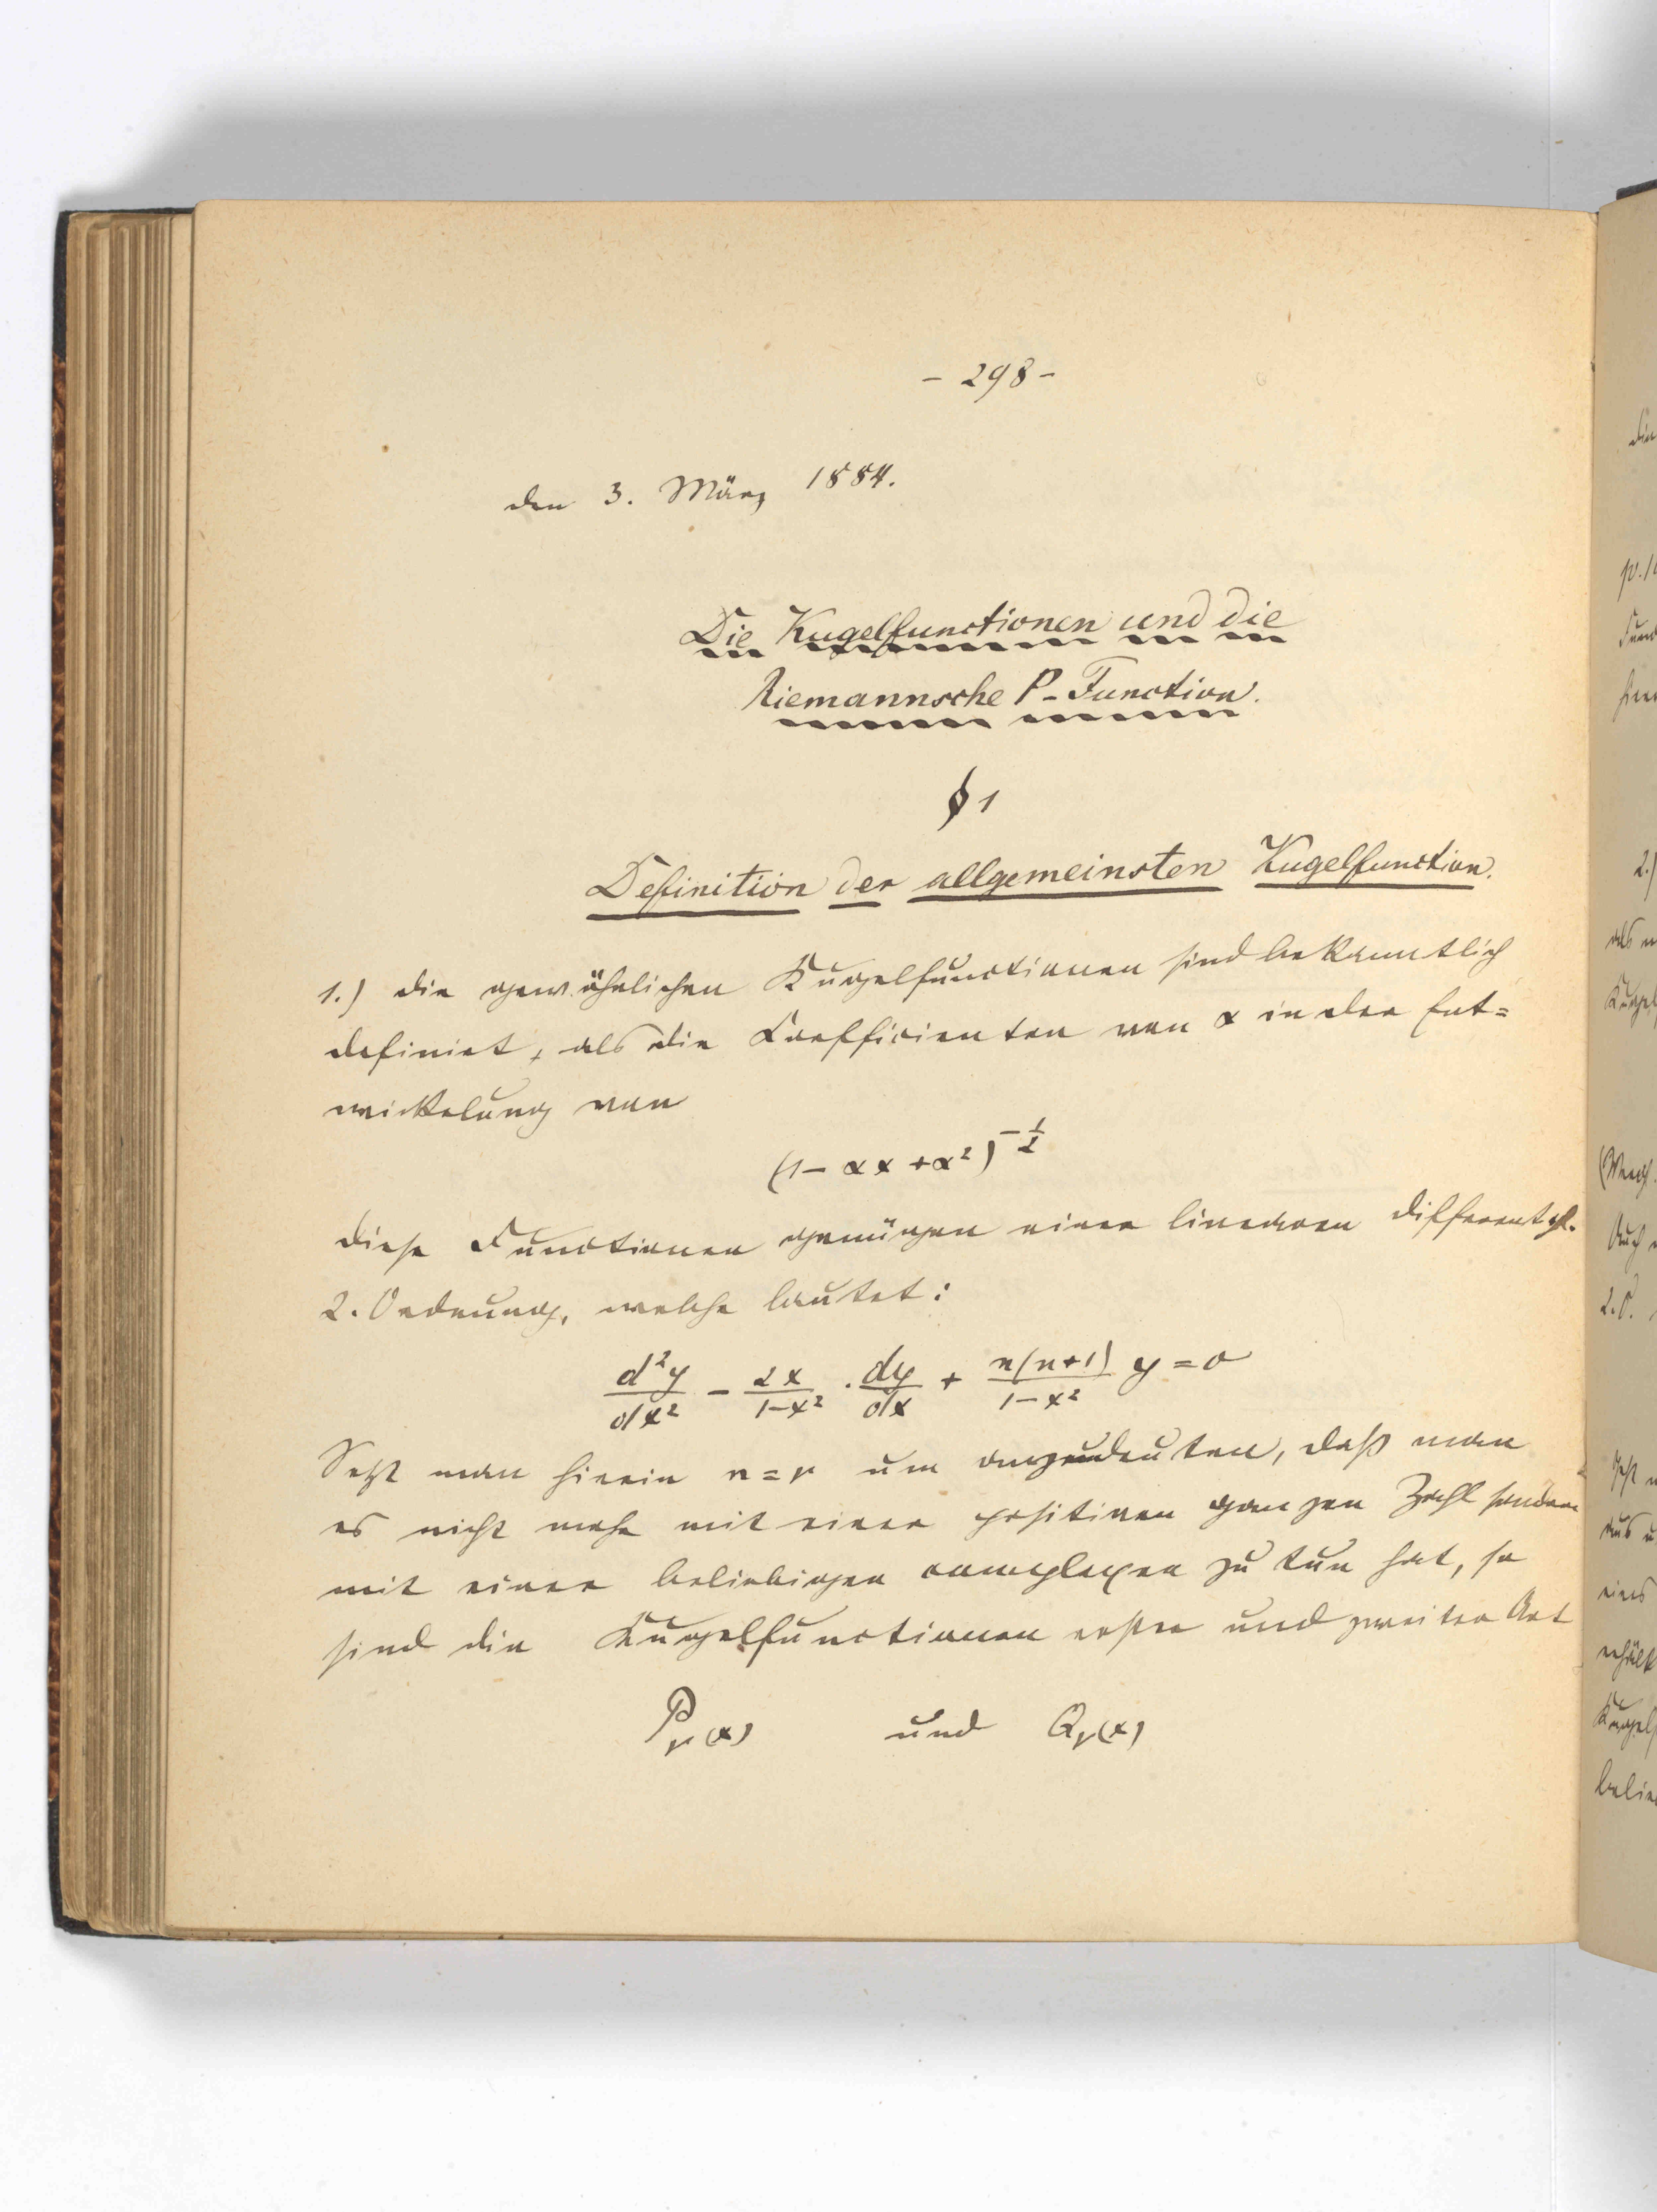 - 298 -
den 3. März 1884.
Die Kugelfunctionen und die
Riemannsche P-Function.
§ 1
Definition der allgemeinsten Kugelfunction.
1.) die gewöhnlichen Kugelfunctionen sind bekanntlich
definirt, als die Coefficienten von α in der Ent=
wickelung von
(1 - αx + α²)^{-1/2}
diese Functionen genügen einer linearen differentgl.
2. Ordnung, welche lautet:
d²y/dx² - 2x/(1-x²) · dy/dx + n(n+1)/(1-x²) y = 0
Setzt man hierin n = ν um anzudeuten, daß man
es nicht mehr mit einer positiven ganzen Zahl sondern
mit einer beliebigen complexen zu tun hat, so
sind die Kugelfunctionen erster und zweiter Art
P_ν(x) und Q_ν(x)